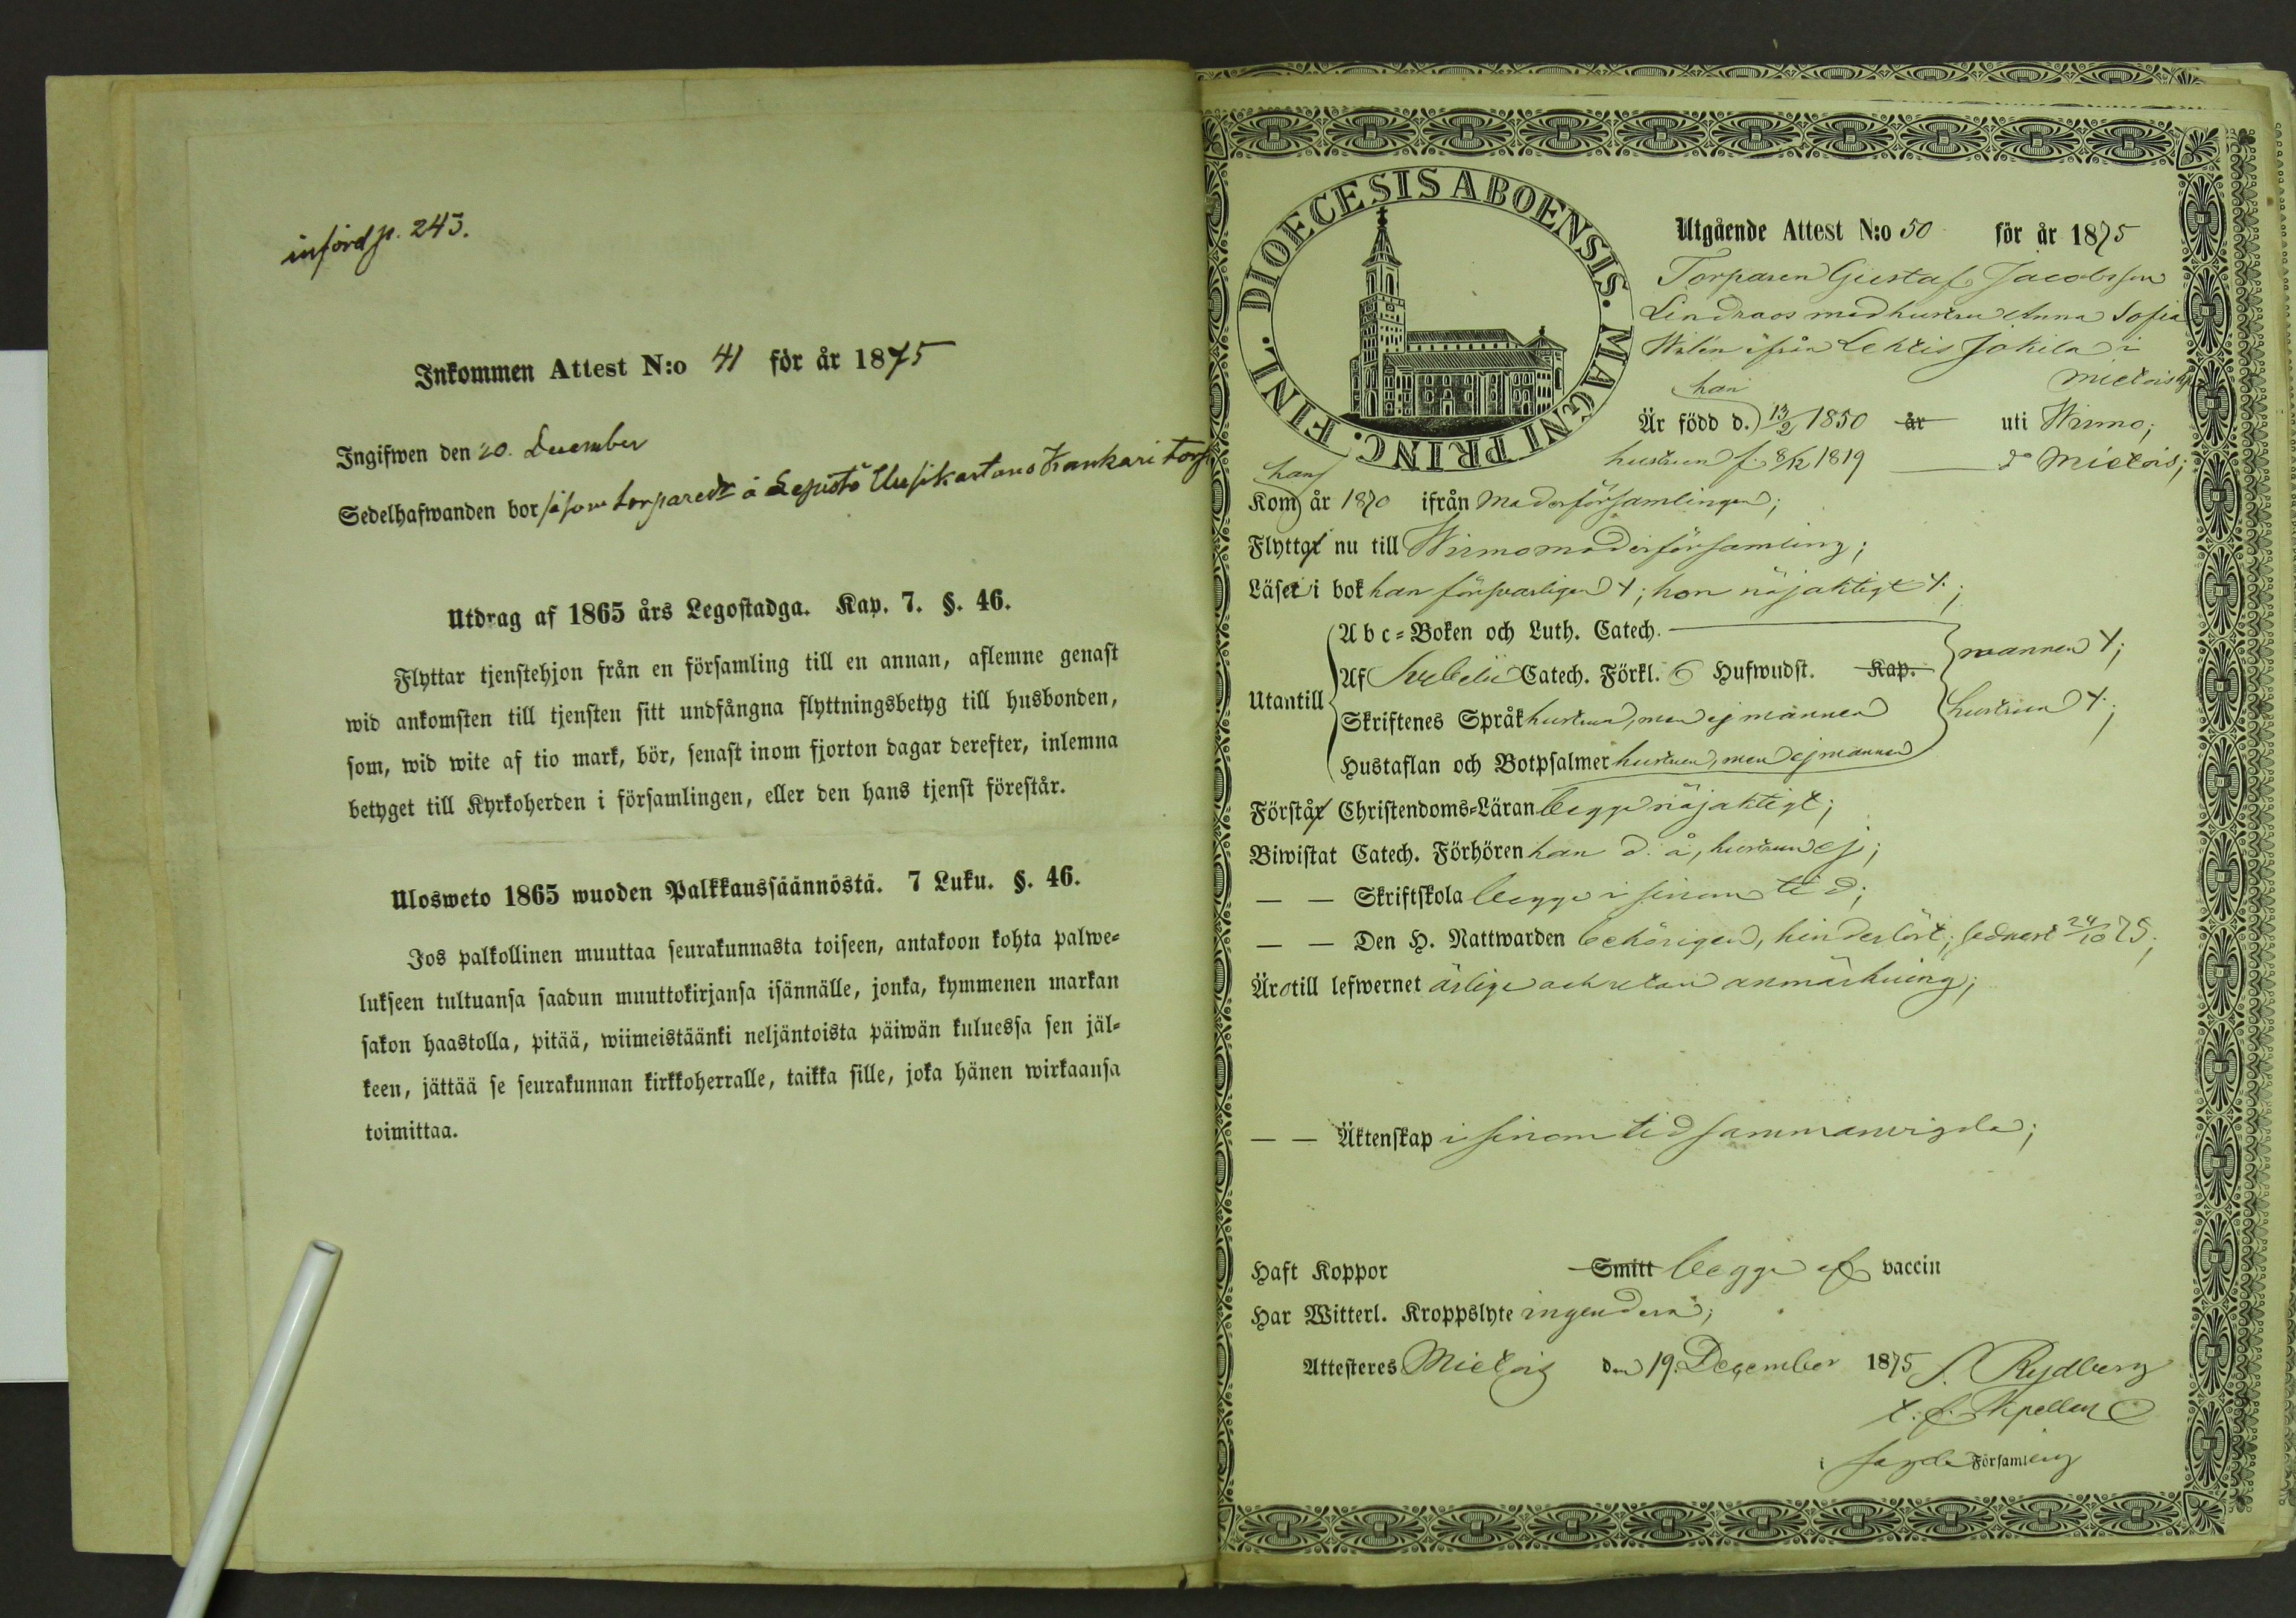 införd p. 243.
Inkommen Attest N:o 41 för år 1875
Ingifwen den 20. December
Sedelhafwanden bor såsom torpare å Lepistö Uusikartano Kankari torp
Utdrag af 1865 års Legostadga. Kap. 7. §. 46.
Flyttar tjenstehjon från en församling till en annan, aflemne genast
wid ankomsten till tjensten sitt undfångna flyttningsbetyg till husbonden,
som, wid wite af tio mark, bör, senast inom fjorton dagar derefter, inlemna
betyget till Kyrkoherden i församlingen, eller den hans tjenst förestår.
Ulosweto 1865 wuoden Palkkaussäännöstä. 7 Luku. §. 46.
Jos palkollinen muuttaa seurakunnasta toiseen, antakoon kohta palwe-
lukseen tultuansa saadun muuttokirjansa isännälle, jonka, kymmenen markan
sakon haastolla, pitää, wiimeistäänki neljäntoista päiwän kuluessa sen jäl-
keen, jättää se seurakunnan kirkkoherralle, taikka sille, joka hänen wirkaansa
toimittaa.
DIOECESIS ABOENSIS. MAGNI PRINC. FINL.
Utgående Attest N:o 50 för år 1875
Torparen Gustaf Jacobsson
Lindraos med hustru Anna Sofia
ifrån Lehtis Jokila i
Mietois
han
Är född d. 13/2 1850 år uti Wirmo;
hustrun f. 8/12 1819 do Mietois;
han
Kom år 1870 ifrån Moderförsamlingen;
Flyttar nu till Wirmo moderförsamling;
Läser i bok han försvarligen +; hon nöjaktigt +;
Abc-Boken och Luth. Catech.
mannen +;
Af Svebelii Catech. Förkl. 6 Hufwudst. Kap.
Utantill
Skriftenes Språk hustrun, men ej mannen
hustrun +;
Hustaflan och Botpsalmer hustrun, men ej mannen
Förstår Christendoms-Läran begge nöjaktigt;
Biwistat Catech. Förhören han d. å, hustrun ej;
— — Skriftskola begge i sinom tid;
— — Den H. Nattwarden behörigen, hinderlöst, sednast 24/10 75;
Äro till lefwernet ärlige och utan anmärkning;
— — Äktenskap i sinom tid sammanvigda;
Haft Koppor Smitt begge af vaccin
Har Witterl. Kroppslyte ingendera;
Attesteres Mietois den 19. December 1875 S. Rydberg
t. f. Kpellan
i sagde Församling